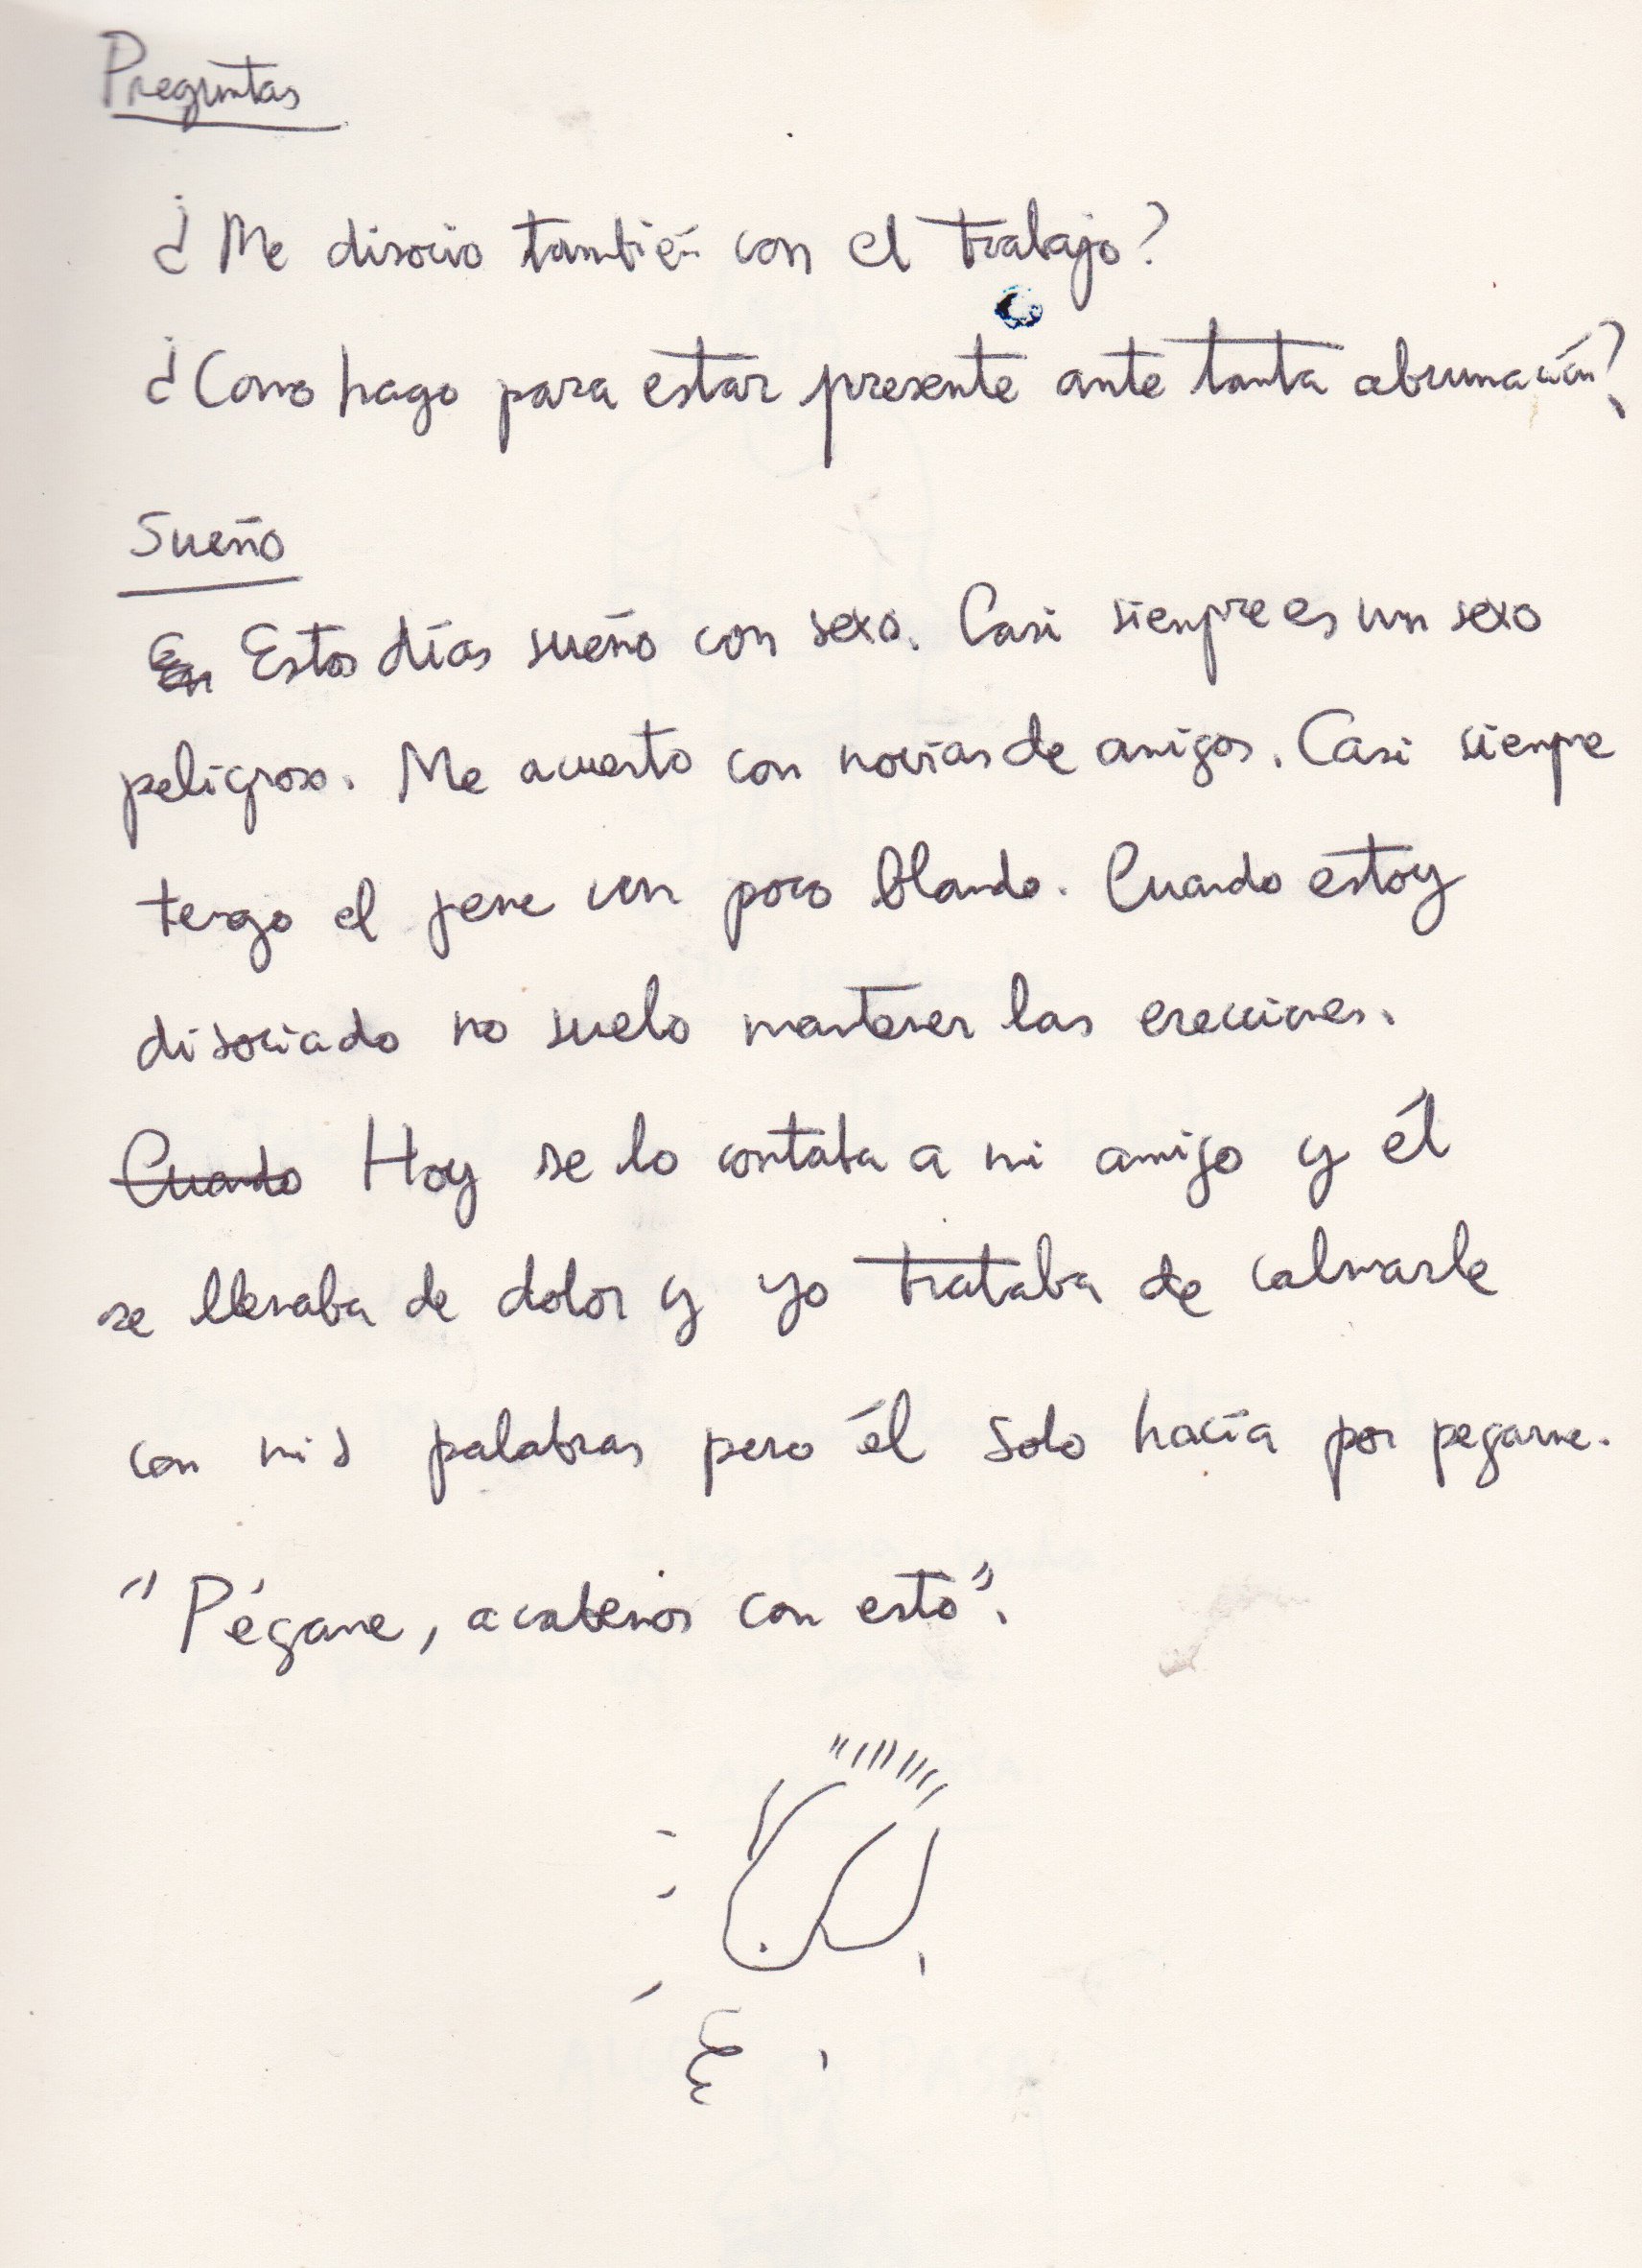 Preguntas
¿Me disocio también con el trabajo?
¿Como hago para estar presente ante tanta abrumación?
Sueño
En Estos días sueño con sexo. Casi siempre es un sexo
peligroso. Me acuesto con novias de amigos. Casi siempre
tengo el pene un poco blando. Cuando estoy
disociado no suelo mantener las erecciones.
Cuando Hoy se lo contaba a mi amigo y él
se llenaba de dolor y yo trataba de calmarle
con mis palabras pero él solo hacía por pegarme.
"Pégame, acabemos con esto".